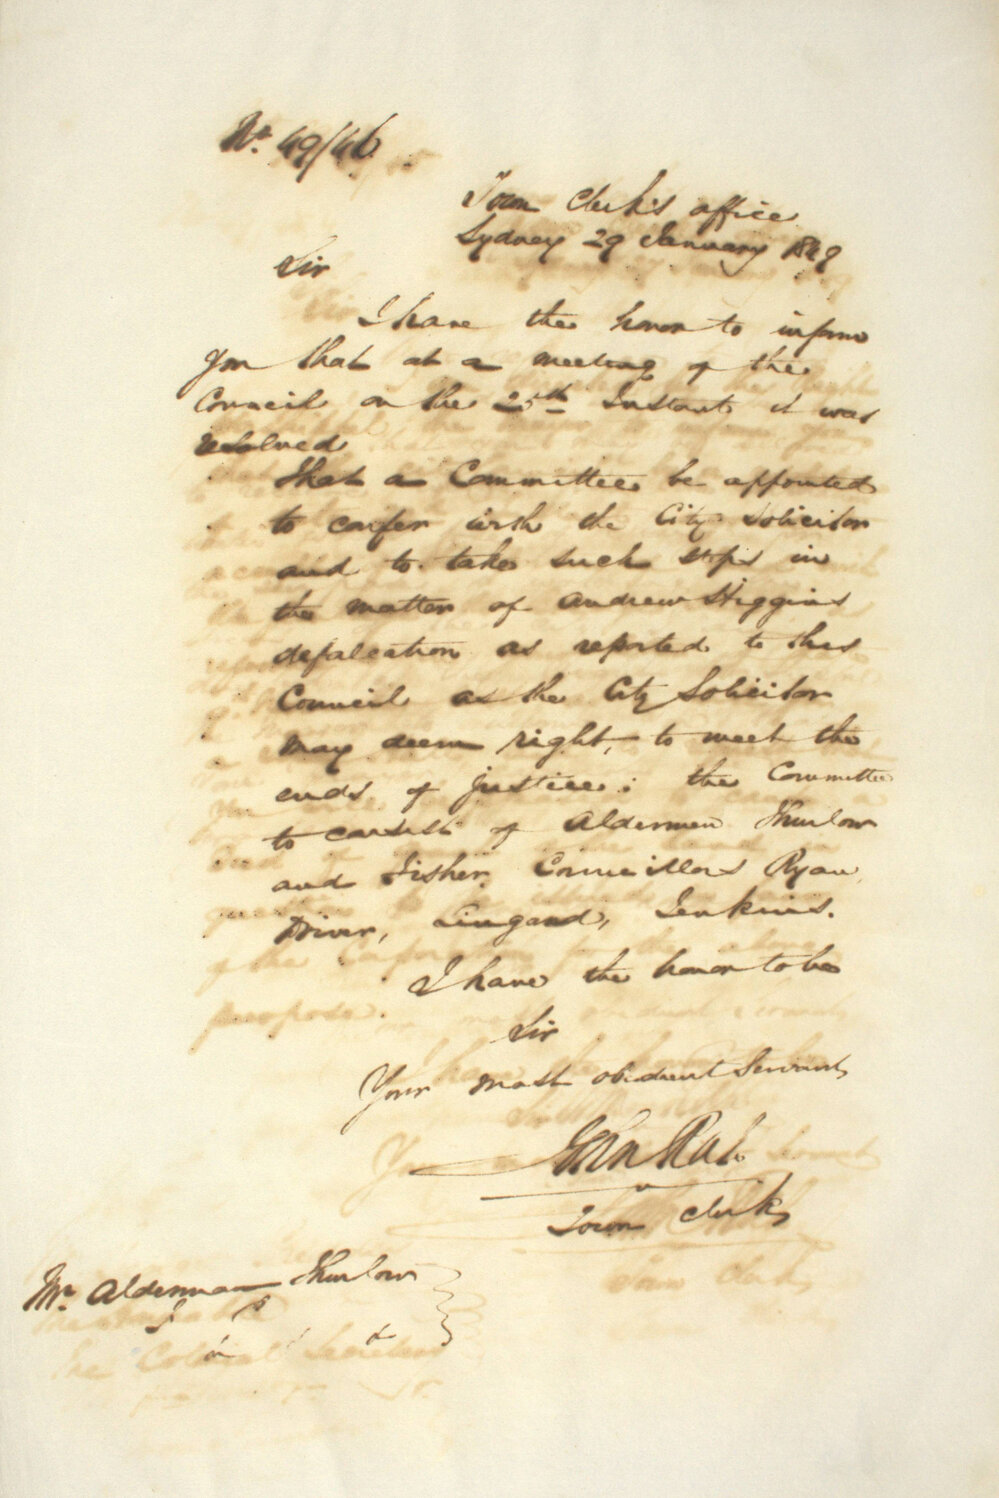 No. 49/46
Town Clerk's office
Sydney 29 January 1849
Sir
I have the honor to inform
you that at a meeting of the
Council on the 25th Instant it was
resolved
That a Committee be appointed
to confer with the City Solicitor
and to take such steps in
the matter of Andrew Higgins
defalcation as reported to this
Council as the City Solicitor
may deem right, to meet the
ends of justice; the Committee
to consist of Aldermen Thurlow
and Fisher, Councillors Ryan,
Driver, Lingard, Jenkins.
I have the honor to be
Sir
Your most obedient Servant
John Rae
Town Clerk
Mr. Alderman Thurlow